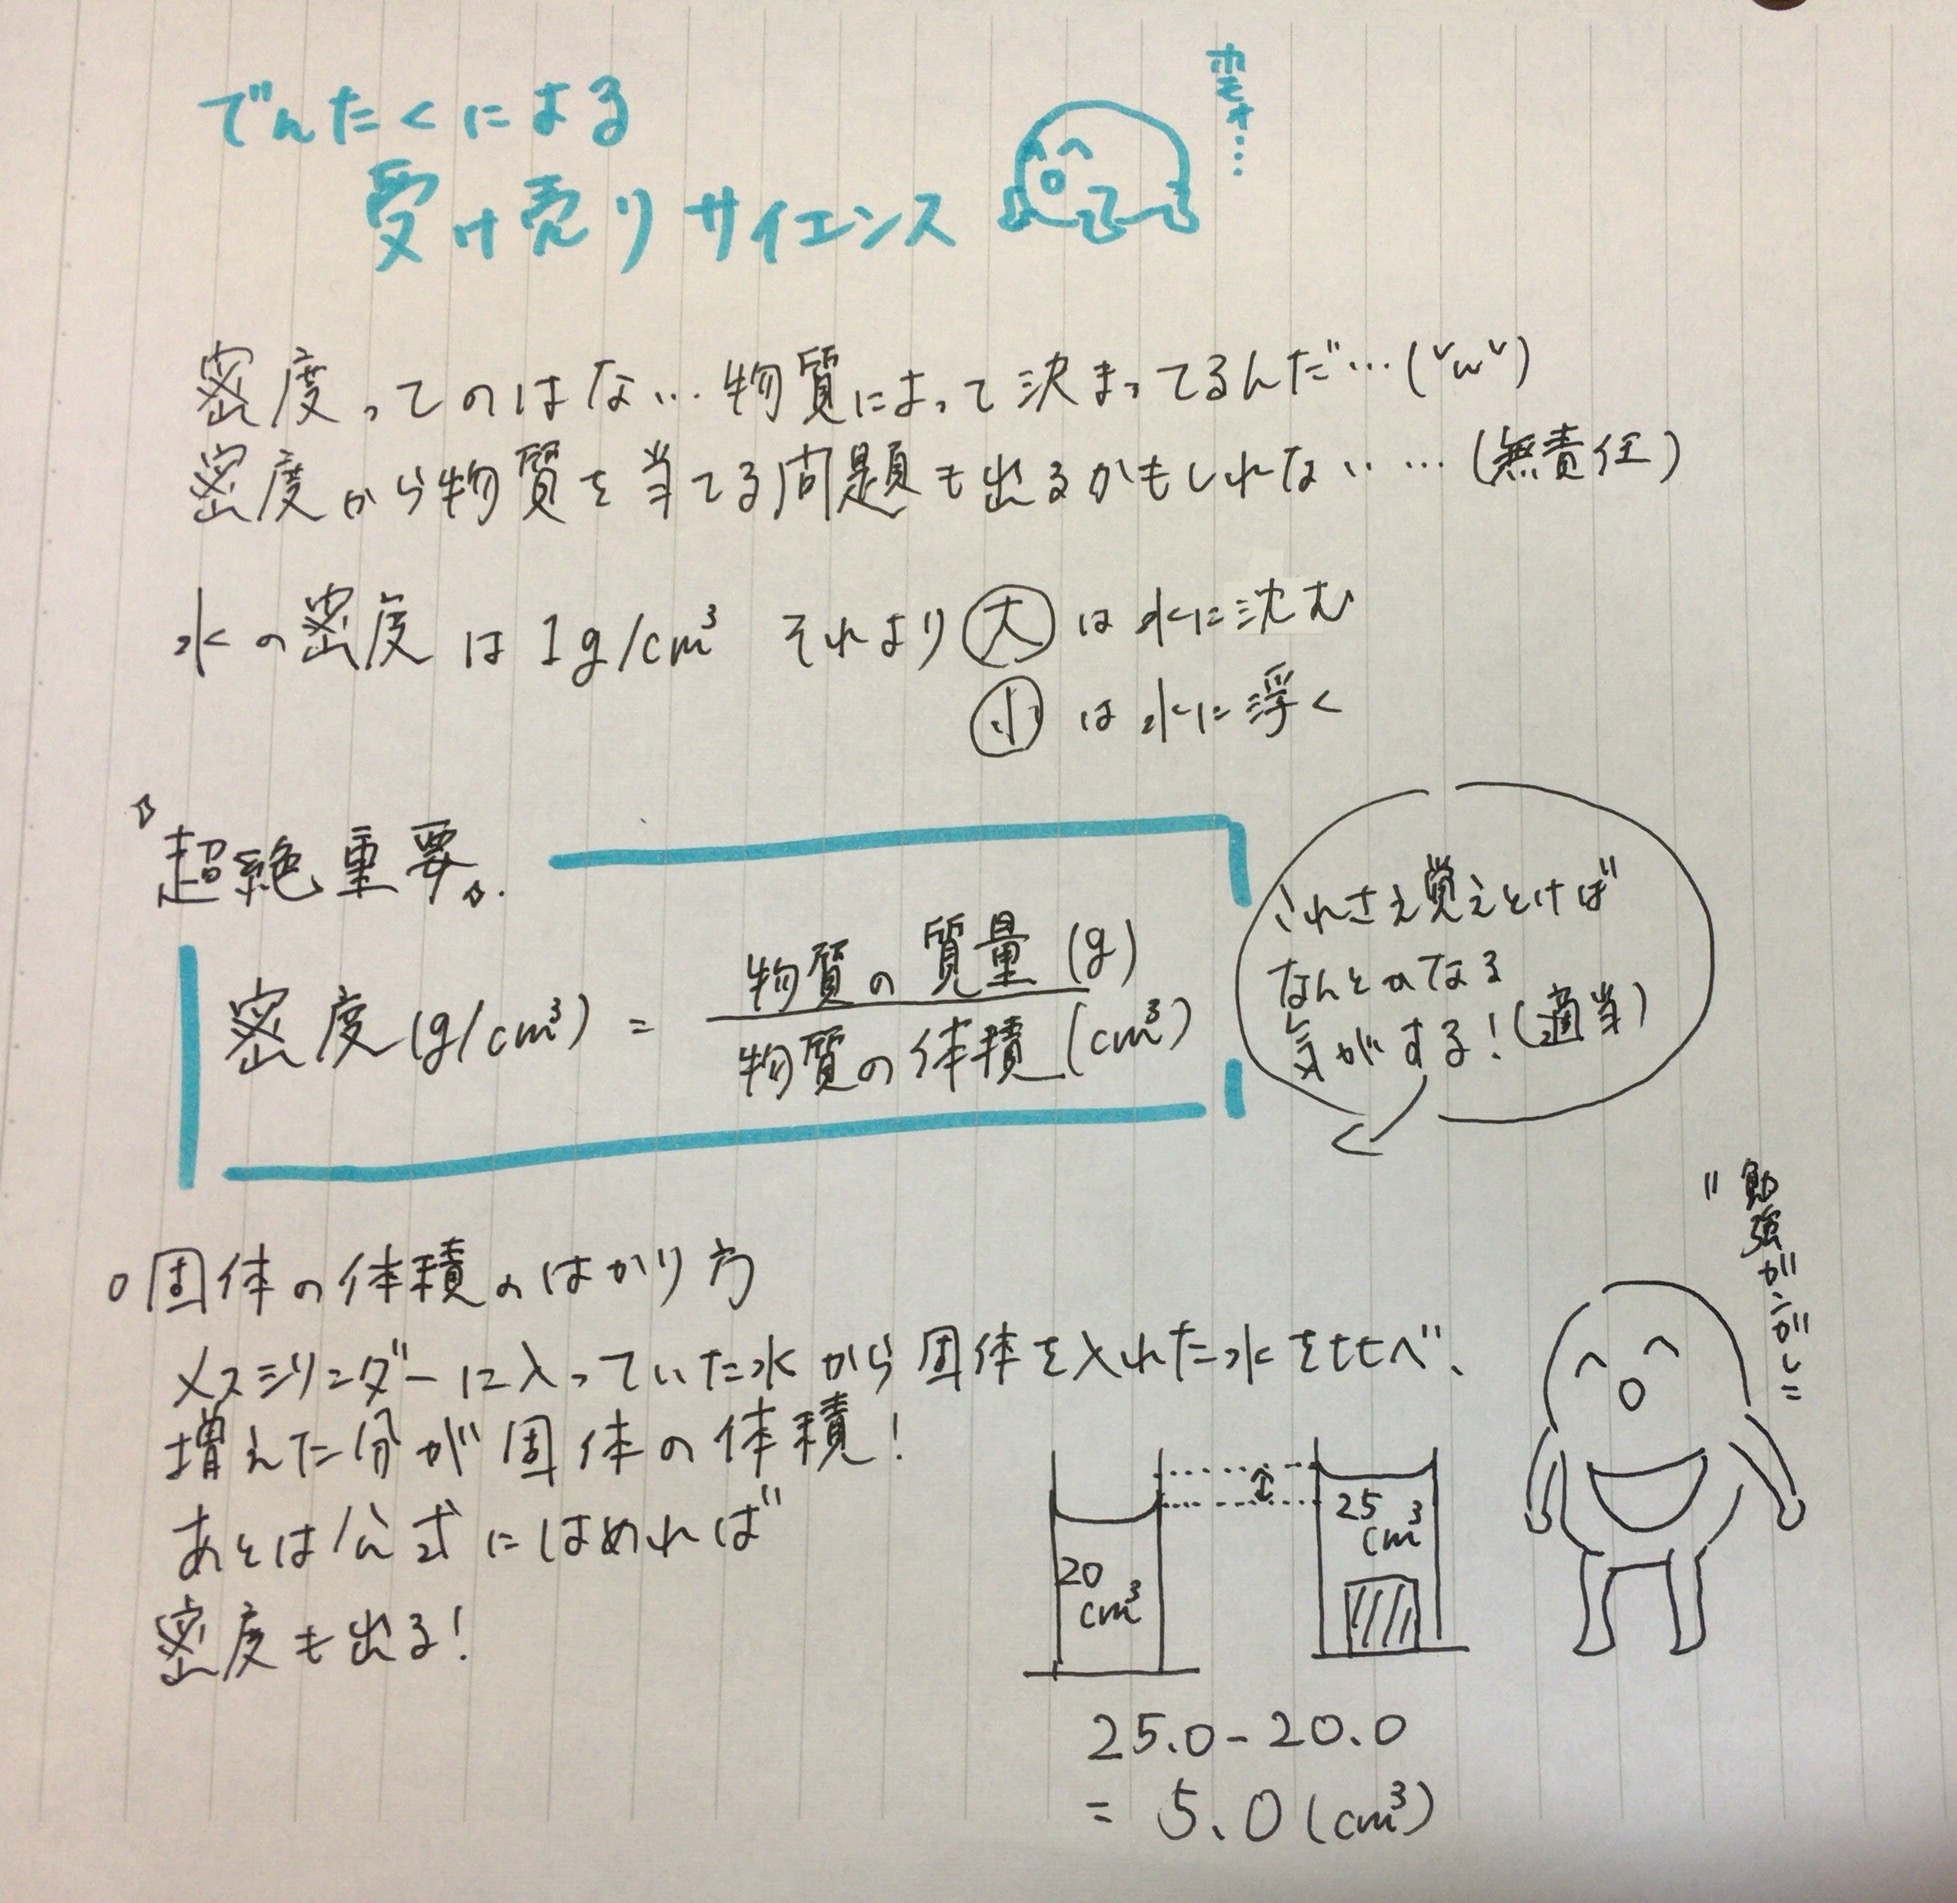 でんたくによる
受け売りサイエンス
密度ってのはな…物質によって決まってるんだ…(ˇωˇ)
密度から物質を当てる問題も出るかもしれない…(無責任)
水の密度は1g/cm³ それより大は水に沈む
小は水に浮く
超絶重要
密度(g/cm³) = 物質の質量(g)
物質の体積(cm³)
これさえ覚えとけば
なんとかなる
気がする!(適当)
勉強が
○固体の体積のはかり方
メスシリンダーに入っていた水から固体を入れた水をせせべ、
増えた分が固体の体積!
あとは公式にはめれば
密度も出る!
20
cm³
25
cm³
25.0-20.0
= 5.0(cm³)